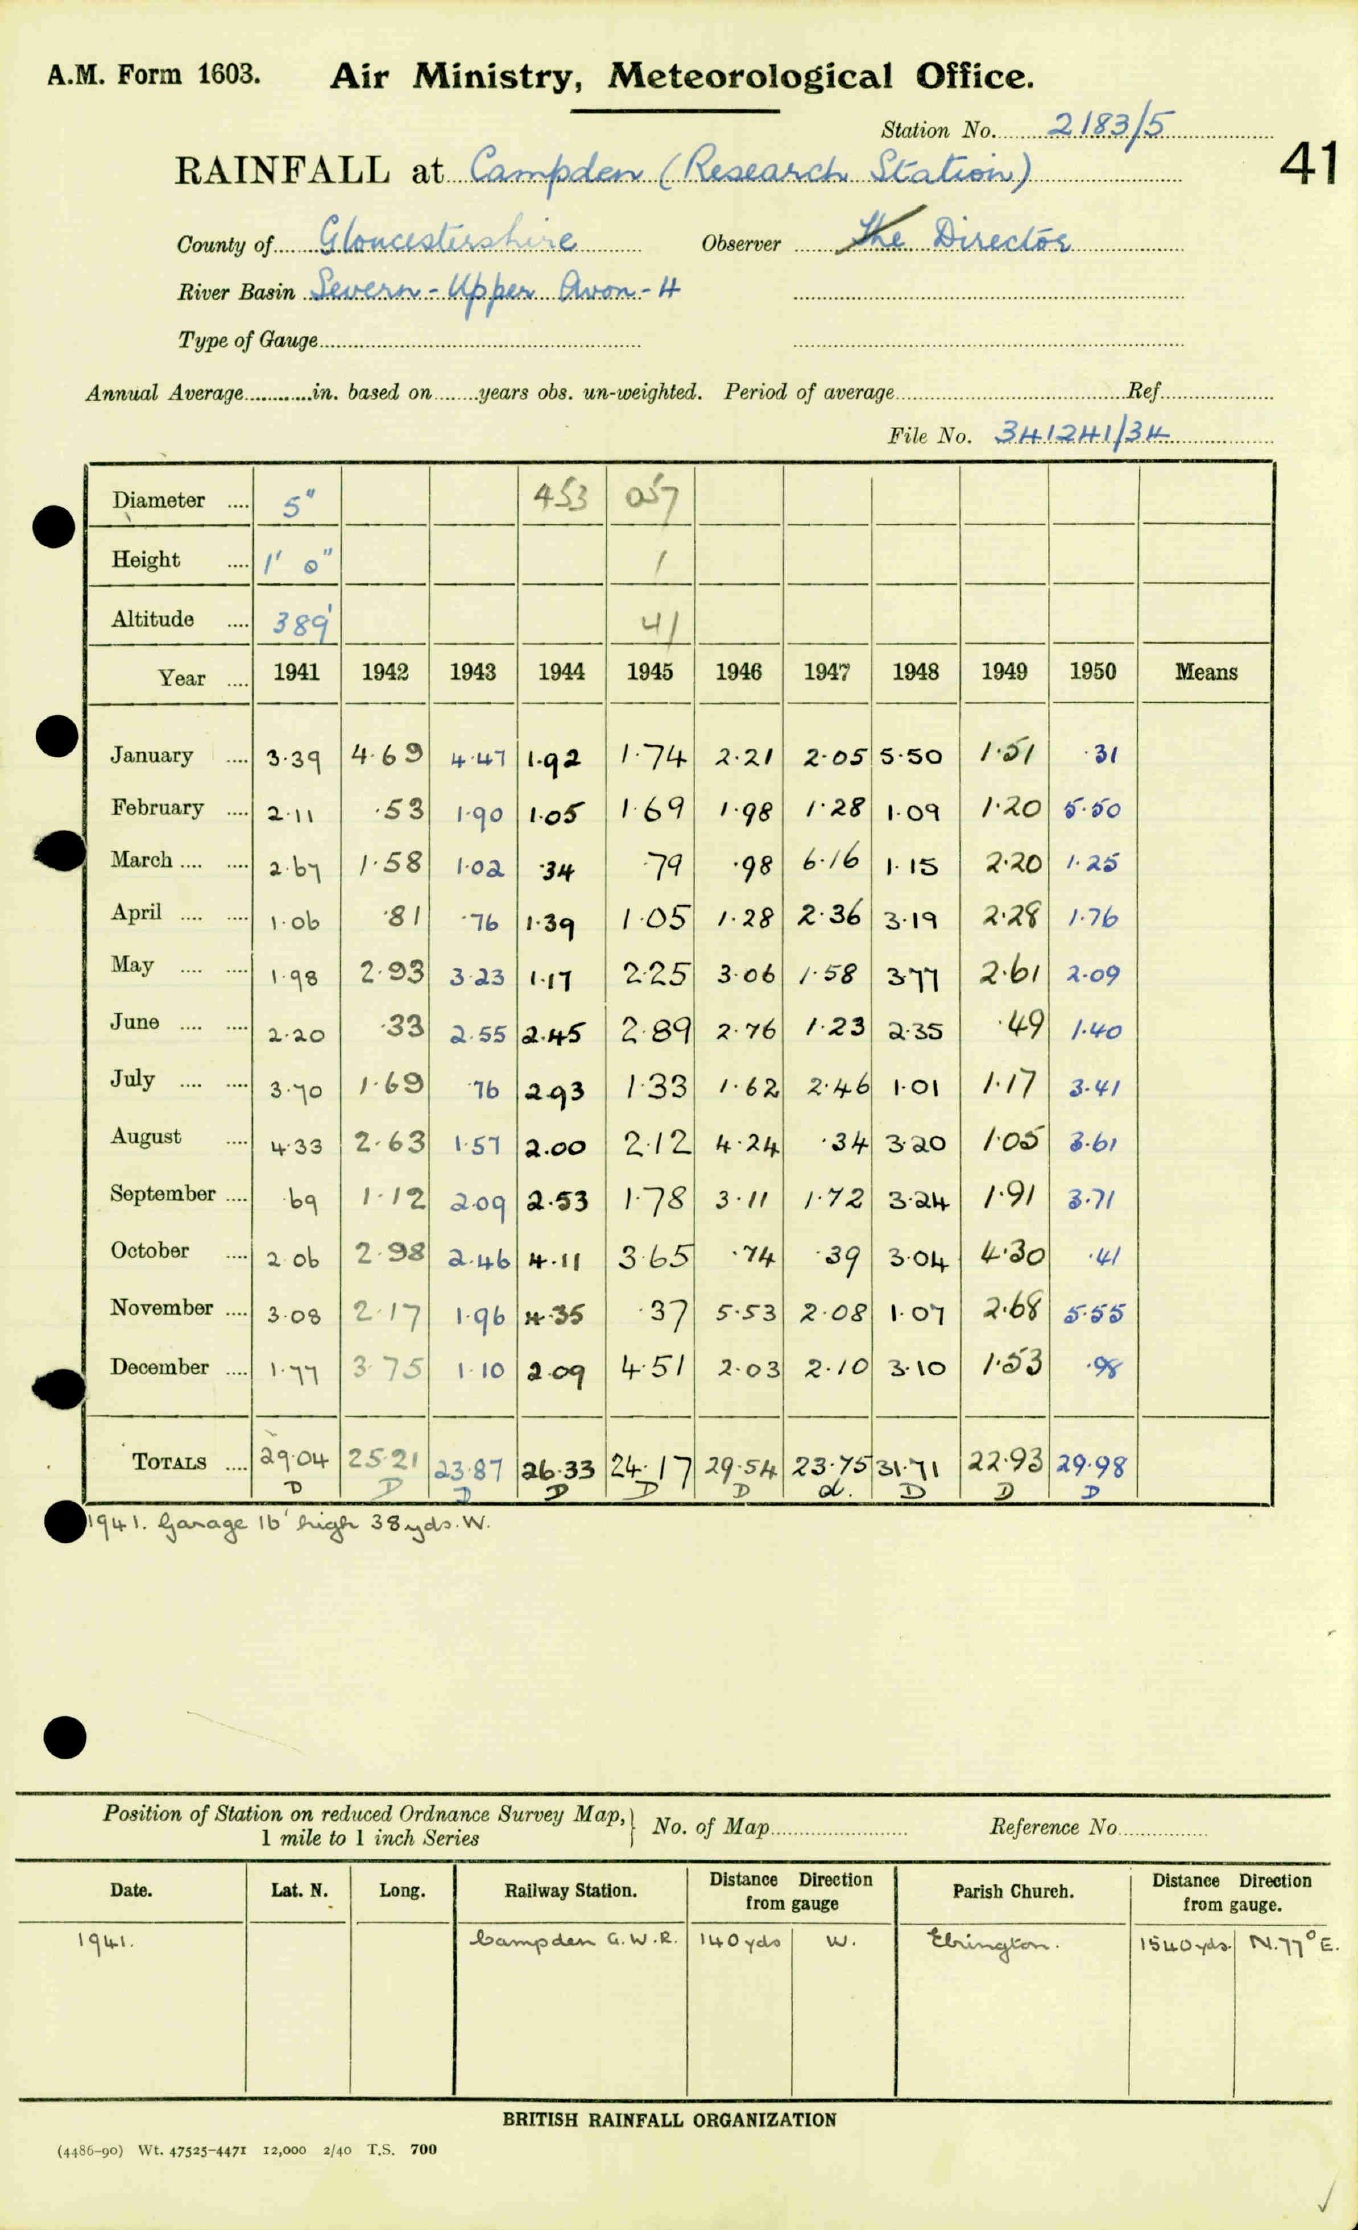 A.M. Form 1603. Air Ministry, Meteorological Office.
Station No. 2183/5
41
RAINFALL at Campden (Research Station)
County of Gloucestershire Observer The Director
River Basin Severn - Upper Avon - H
Type of Gauge
Annual Average in. based on years obs. un-weighted. Period of average Ref.
File No. 341241/34
Diameter 5" 453 057
Height 1' 0" 1
Altitude 389' 41
Year 1941 1942 1943 1944 1945 1946 1947 1948 1949 1950 Means
January 3.39 4.69 4.47 1.92 1.74 2.21 2.05 5.50 1.51 .31
February 2.11 .53 1.90 1.05 1.69 1.98 1.28 1.09 1.20 5.50
March 2.67 1.58 1.02 .34 .79 .98 6.16 1.15 2.20 1.25
April 1.06 .81 .76 1.39 1.05 1.28 2.36 3.19 2.28 1.76
May 1.98 2.93 3.23 1.17 2.25 3.06 1.58 3.77 2.61 2.09
June 2.20 .33 2.55 2.45 2.89 2.76 1.23 2.35 .49 1.40
July 3.70 1.69 .76 2.93 1.33 1.62 2.46 1.01 1.17 3.41
August 4.33 2.63 1.57 2.00 2.12 4.24 .34 3.20 1.05 3.61
September .69 1.12 2.09 2.53 1.78 3.11 1.72 3.24 1.91 3.71
October 2.06 2.98 2.46 4.11 3.65 .74 .39 3.04 4.30 .41
November 3.08 2.17 1.96 4.35 .37 5.53 2.08 1.07 2.68 5.55
December 1.77 3.75 1.10 2.09 4.51 2.03 2.10 3.10 1.53 .98
TOTALS 29.04 25.21 23.87 26.33 24.17 29.54 23.75 31.71 22.93 29.98
D D D D D D d. D D D
1941. Garage 16' high 38 yds. W.
Position of Station on reduced Ordnance Survey Map, No. of Map Reference No.
1 mile to 1 inch Series
Date. Lat. N. Long. Railway Station. Distance Direction from gauge Parish Church. Distance Direction from gauge.
1941. Campden G.W.R. 140 yds W. Ebrington. 1540 yds. N.77°E.
BRITISH RAINFALL ORGANIZATION
(4486-90) Wt. 47525-4471 12,000 2/40 T.S. 700